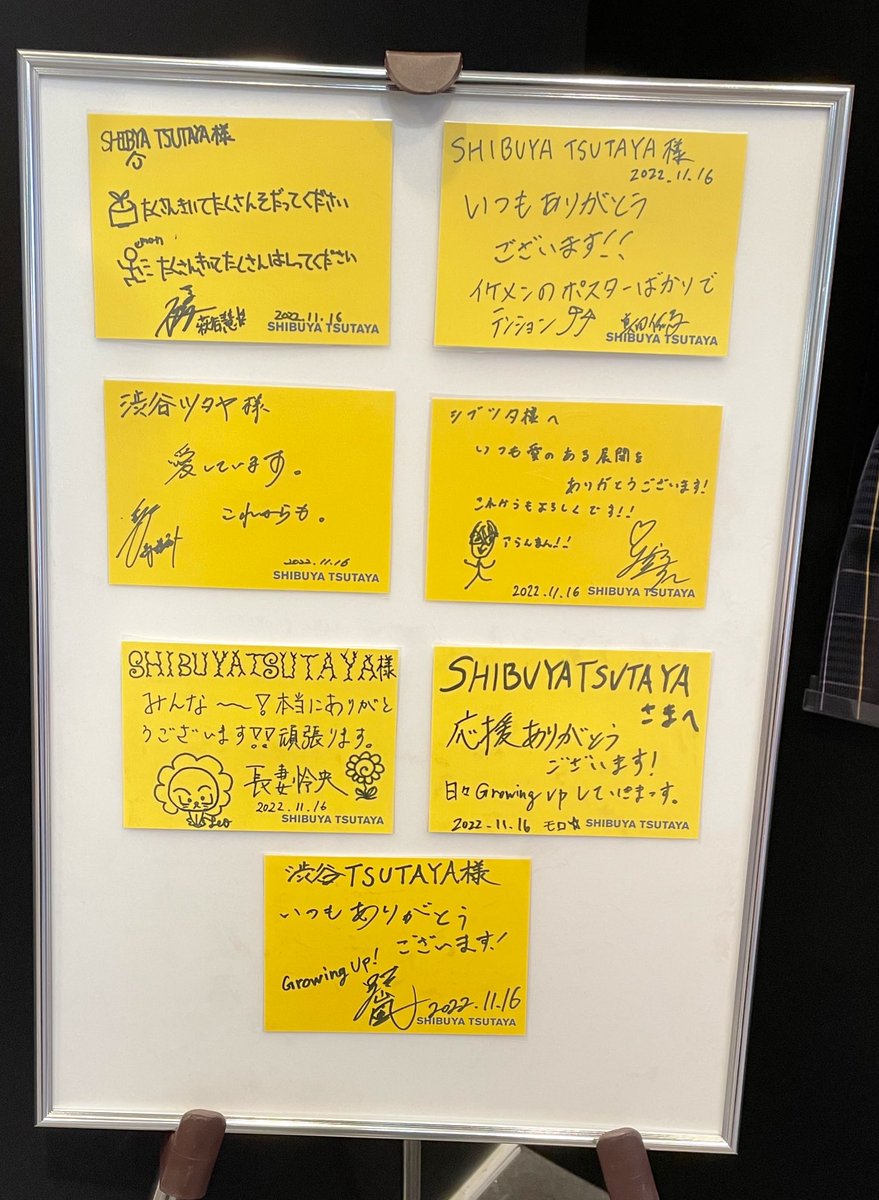 SHIBYA TSUTAYA様
たくさんきいてたくさんそだってください
emon
たくさんきいてたくさんはしってください
萩谷慧悟
2022.11.16
SHIBUYA TSUTAYA
SHIBUYA TSUTAYA様
2022.11.16
いつもありがとう
ございます!!
イケメンのポスターばかりで
テンション⤴⤴
真田佑馬
SHIBUYA TSUTAYA
渋谷ツタヤ様
愛しています。
これからも。
2022.11.16
SHIBUYA TSUTAYA
シブツタ様へ
いつも愛のある展開を
ありがとうございます!
これからもよろしくです!!
アらんまん!!
2022.11.16
SHIBUYA TSUTAYA
SHIBUYATSUTAYA様
みんな〜!本当にありがと
うございます!!頑張ります。
長妻怜央
Leo
2022.11.16
SHIBUYA TSUTAYA
SHIBUYATSUTAYA
さまへ
応援ありがとう
ございます!
日々Growing upしていきまっす。
2022.11.16
モロ
SHIBUYA TSUTAYA
渋谷TSUTAYA様
いつもありがとう
ございます!
Growing UP!
嵐
2022.11.16
SHIBUYA TSUTAYA